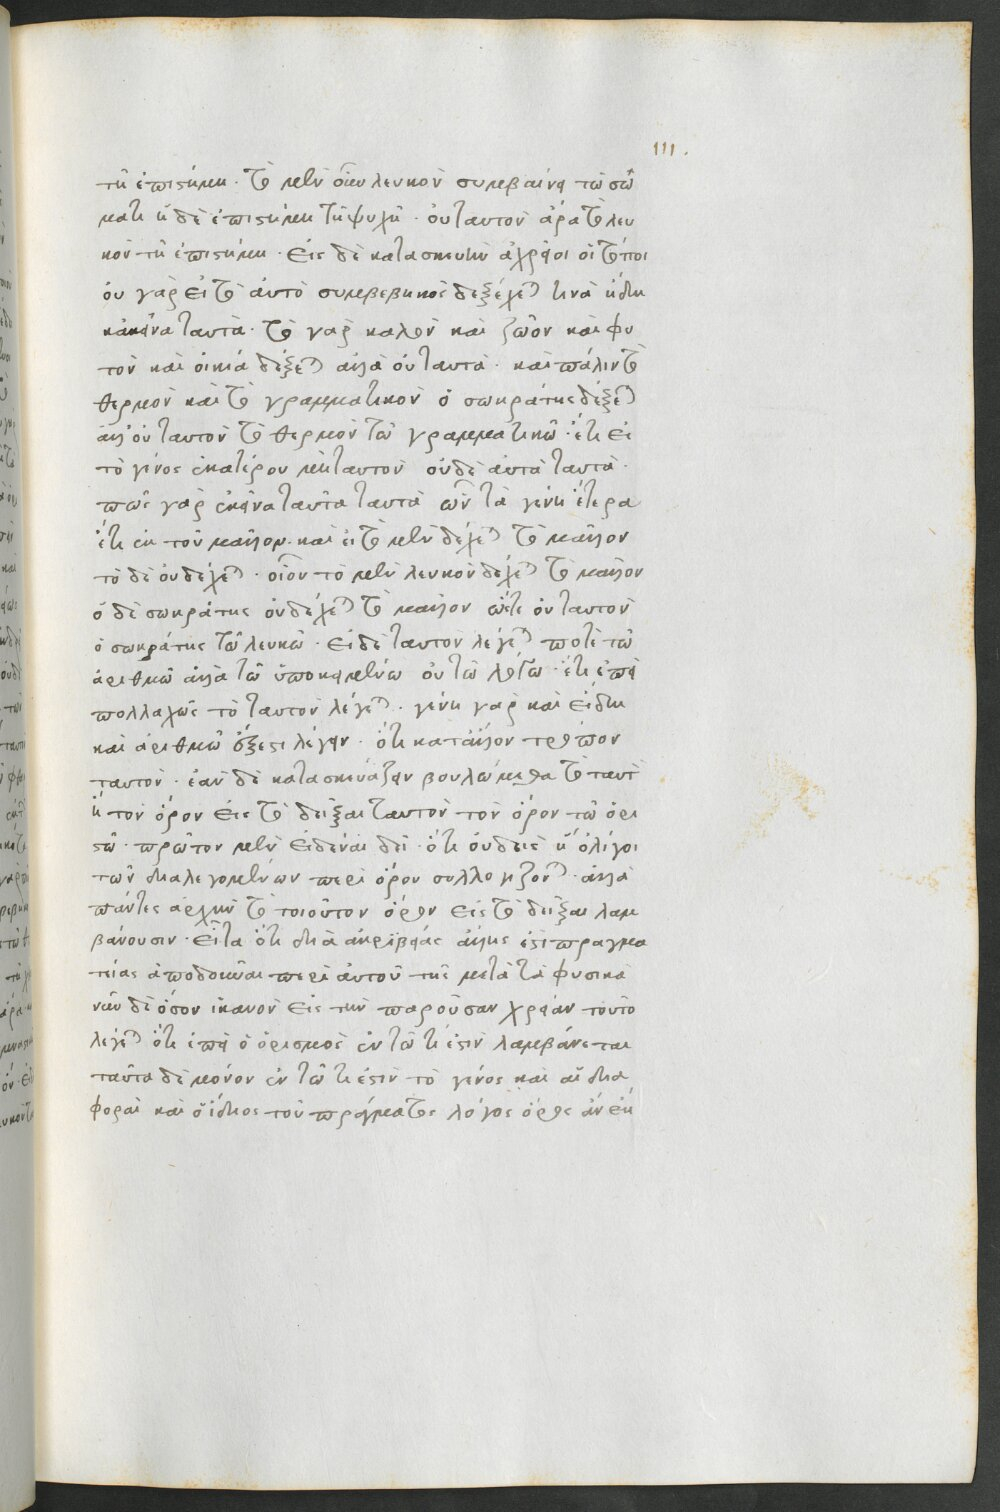 111.
τῆ ἐπιστήμη · τὸ μὲν οὖν λευκὸν συμβαίνει τῶ σώ
ματι ἡ δὲ ἐπιστήμη τῆ ψυχῆ · οὐ ταυτὸν ἄρα τὸ λευ
κὸν τῆ ἐπιστήμη · Εἰς δὲ κατασκευὴν ἄχρηστοι οἱ τόποι
οὐ γὰρ εἰ τὸ αὐτὸ συμβεβηκὸς δέξεται τινὰ ἤδη
κἀκεῖνα ταυτά · τὸ γὰρ καλὸν καὶ ζῶον καὶ φυ
τὸν καὶ οἰκία δέξεται ἀλλὰ οὐ ταυτά · καὶ πάλιν τὸ
θερμὸν καὶ τὸ γραμματικὸν ὁ σωκράτης δέξεται
ἀλλ' οὐ ταυτὸν τὸ θερμὸν τῶ γραμματικῶ · ἔτι εἰ
τὸ γένος ἑκατέρου μὴ ταυτὸν οὐδὲ αὐτὰ ταυτά ·
πῶς γὰρ ἐκεῖνα ταῦτα ταυτὰ ὧν τὰ γένη ἕτερα
ἔτι ἐκ τοῦ μᾶλλον · καὶ εἰ τὸ μὲν δέχεται τὸ μᾶλλον
τὸ δὲ οὐ δέχεται · οἷον τὸ μὲν λευκὸν δέχεται τὸ μᾶλλον
ὁ δὲ σωκράτης οὐ δέχεται τὸ μᾶλλον ὥστε οὐ ταυτὸν
ὁ σωκράτης τῶ λευκῶ · εἰ δὲ ταυτὸν λέγεται ποτὲ τῶ
ἀριθμῶ ἀλλὰ τῶ ὑποκειμένω οὐ τῶ λόγω · ἔτι ἐπεὶ
πολλαχῶς τὸ ταυτὸν λέγεται · γένη γὰρ καὶ εἴδη
καὶ ἀριθμῶ ἔξεστι λέγειν · ὅτι κατ' ἄλλον τρόπον
ταυτόν · ἐὰν δὲ κατασκευάζειν βουλώμεθα τὸ ταυτὸν
ἢ τὸν ὅρον εἰς τὸ δεῖξαι ταυτὸν τὸν ὅρον τῶ ὁρι
στῶ · πρῶτον μὲν εἰδέναι δεῖ · ὅτι οὐδεὶς ἢ ὀλίγοι
τῶν διαλεγομένων περὶ ὅρον συλλογίζονται · ἀλλὰ
πάντες ἀρχὴν τὸ τοιοῦτον ὅρον εἰς τὸ δεῖξαι λαμ
βάνουσιν · εἶτα ὅτι διὰ ἀκριβείας ἄλλης ἐστὶ πραγμα
τείας ἀποδοῦναι περὶ αὐτοῦ τῆς μετὰ τὰ φυσικὰ
νῦν δὲ ὅσον ἱκανὸν εἰς τὴν παροῦσαν χρείαν τοῦτο
λέγεται ὅτι ἐπεὶ ὁ ὁρισμὸς ἐν τῶ τί ἐστιν λαμβάνεται
ταῦτα δὲ μόνον ἐν τῶ τί ἐστιν τὸ γένος καὶ αἱ δια
φοραὶ καὶ ὁ ἴδιος τοῦ πράγματος λόγος ὅρος ἂν εἴη